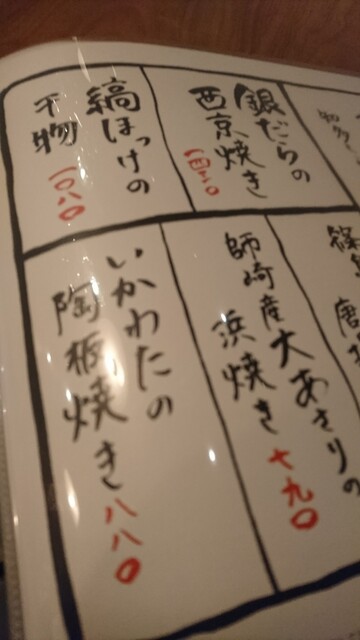 銀だらの
西京焼き
一四三〇
縞ほっけの
干物
一〇八〇
師崎産大あさりの
浜焼き
七九〇
いかわたの
陶板焼き
八八〇